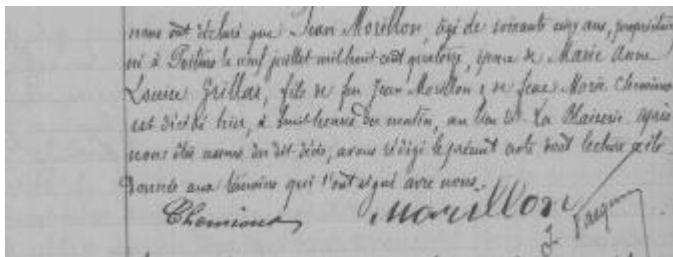 nous ont déclaré que Jean Morillon, agé de soixante cinq ans, propriétaire
né à Poitiers le neuf juillet mil huit cent quatorze, époux de Marie Anne
Louise Grillas, fils de feu Jean Morillon & de feue Marie Chemioux
est décédé hier, à huit heures du matin, au lieu dit La après
nous être assuré du dit décès, avons rédigé le présent acte dont lecture a été
donnée aux témoins qui l'ont signé avec nous.
Chemioux Morillon